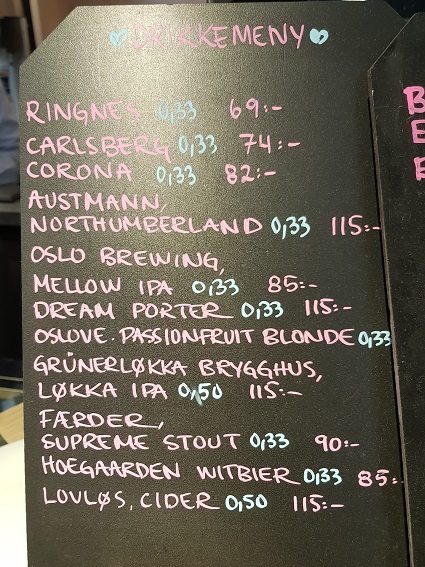 DRIKKEMENY
RINGNES 0,33 69:-
CARLSBERG 0,33 74:-
CORONA 0,33 82:-
AUSTMANN,
NORTHUMBERLAND 0,33 115:-
OSLO BREWING,
MELLOW IPA 0,33 85:-
DREAM PORTER 0,33 115:-
OSLOVE. PASSIONFRUIT BLONDE 0,33
GRÜNERLØKKA BRYGGHUS,
LØKKA IPA 0,50 115:-
FÆRDER,
SUPREME STOUT 0,33 90:-
HOEGAARDEN WITBIER 0,33 85:-
LOVLØS, CIDER 0,50 115:-
B
E
E